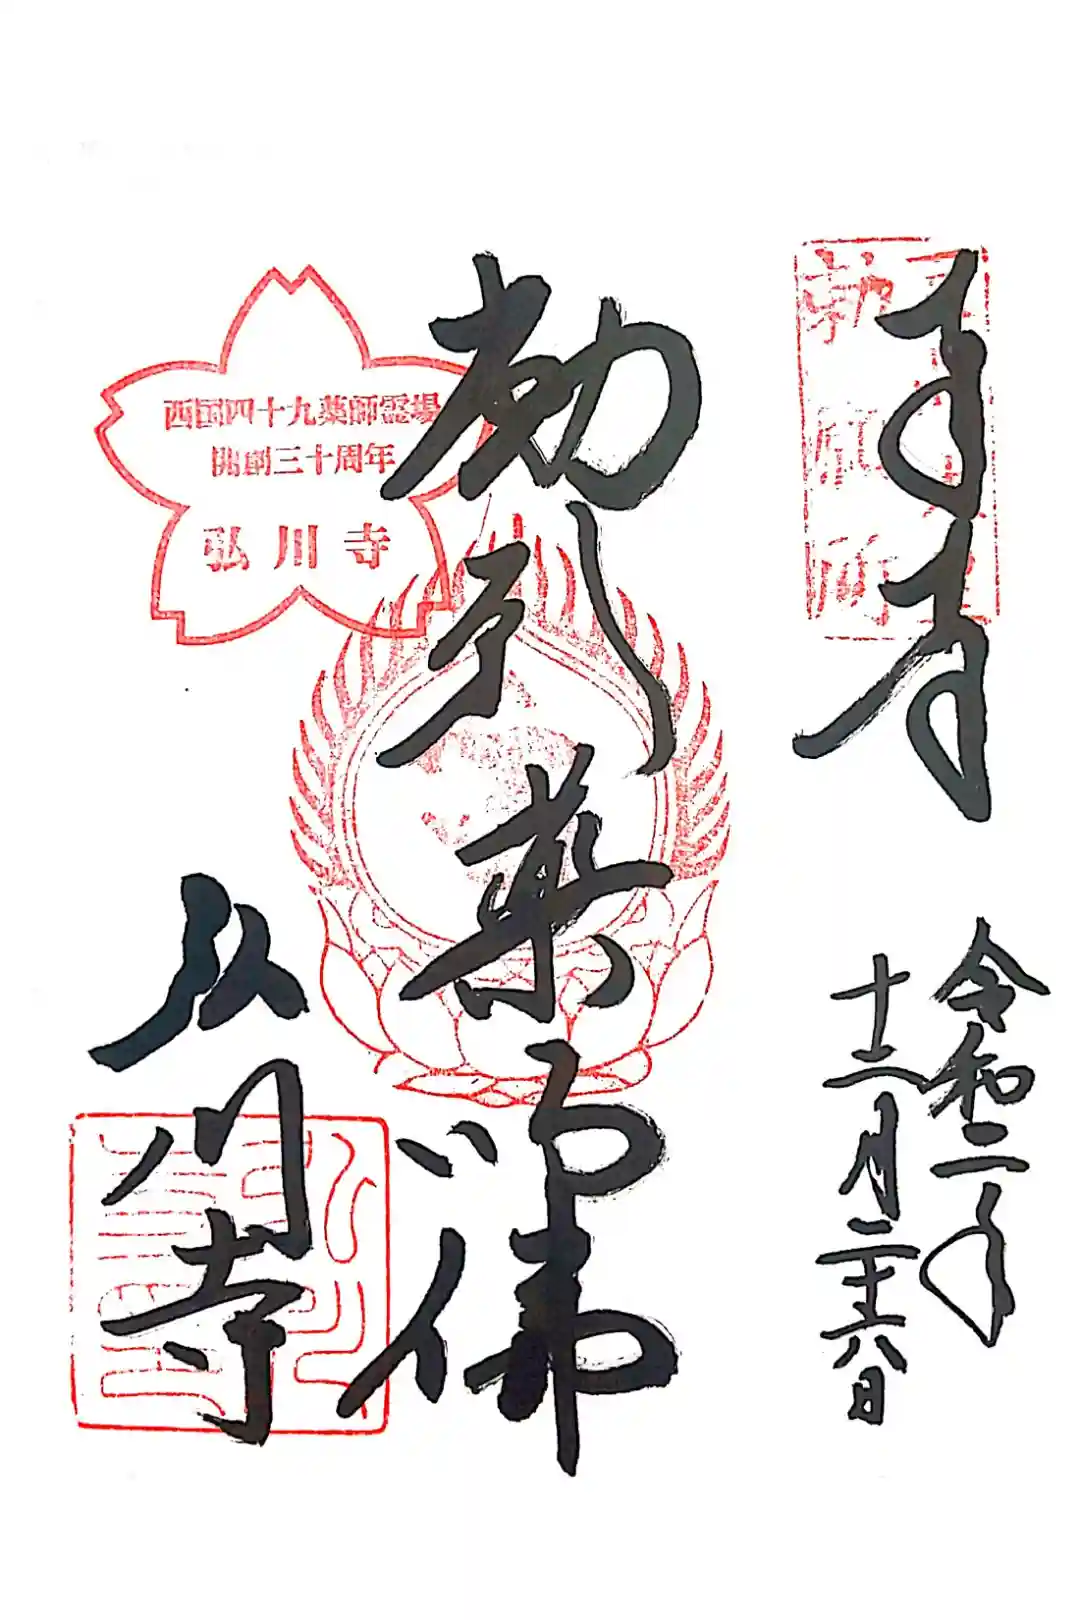 奉拝
勅願所
令和二年
十二月二十六日
勅 薬師佛
西国四十九薬師霊場
開創三十周年
弘川寺
弘川寺